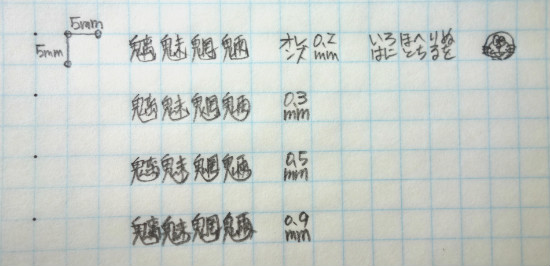 5mm
5mm
魑魅魍魎 オレンズ 0.2mm いろはにほへとちりぬるを
魑魅魍魎 0.3mm
魑魅魍魎 0.5mm
魑魅魍魎 0.9mm